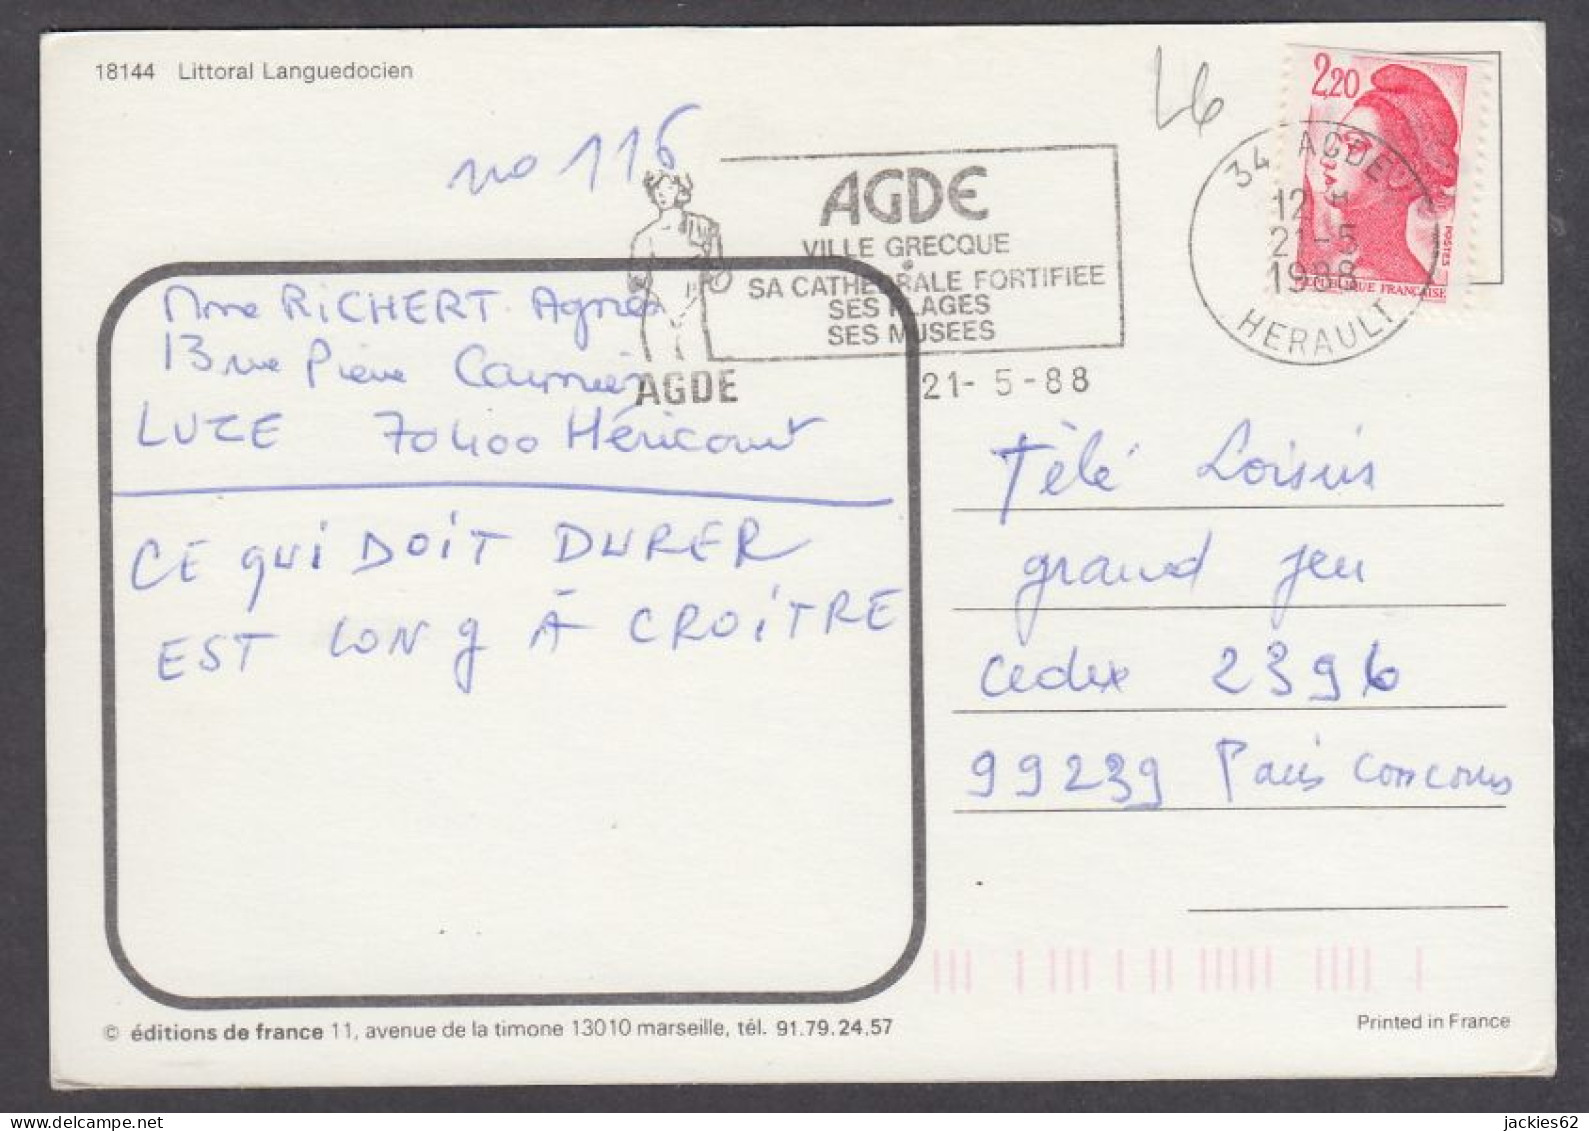 18144 Littoral Languedocien
no 116
L6
2,20
POSTES
REPUBLIQUE FRANÇAISE
34 AGDE
12 H
21-5
1988
HERAULT
AGDE
VILLE GRECQUE
SA CATHEDRALE FORTIFIEE
SES PLAGES
SES MUSEES
AGDE
21-5-88
Mme RICHERT Agnès
13 rue Pierre
LUZE 70400 Héricourt
CE QUI DOIT DURER
EST LONG À CROITRE
Télé Loisirs
grand jeu
cedex 2396
99239 Paris concours
© éditions de france 11, avenue de la timone 13010 marseille, tél. 91.79.24.57
Printed in France
jackies62